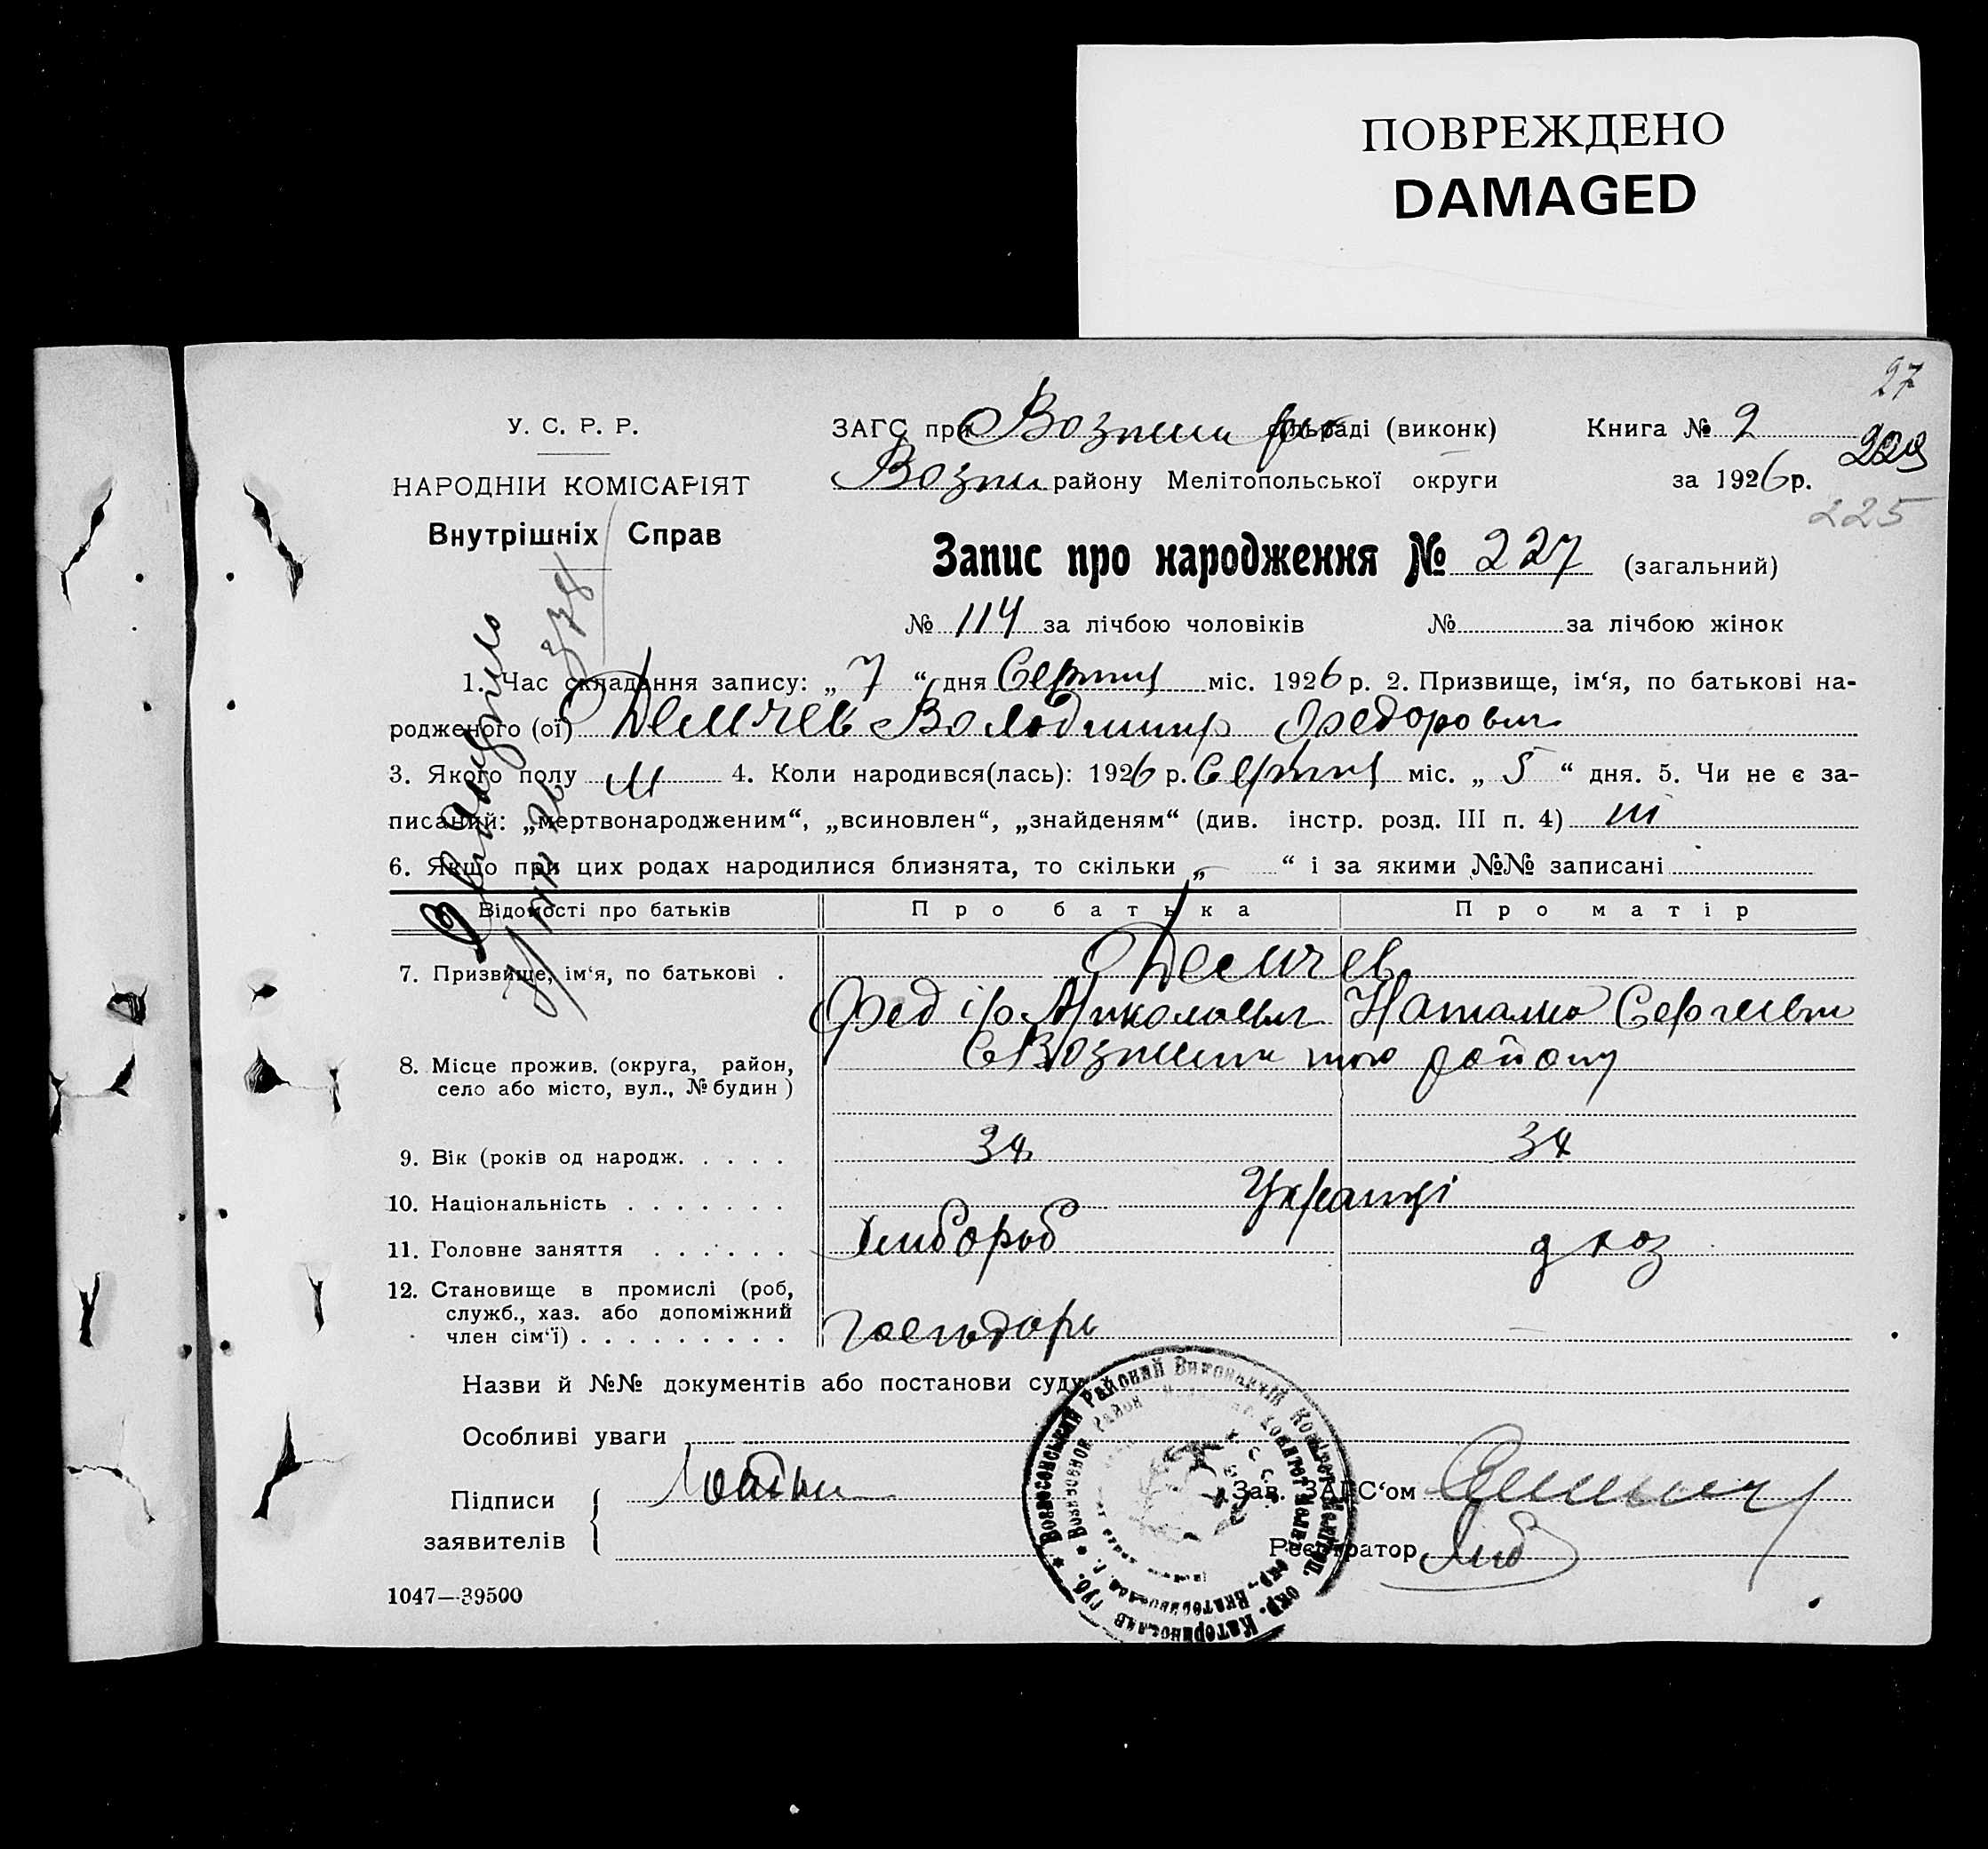 ПОВРЕЖДЕНО
DAMAGED
27
У. С. Р. Р.
ЗАГС при Вознеси сільраді (виконк) Книга № 2
229
НАРОДНІЙ КОМІСАРІЯТ
Возни району Мелітопольської округи за 1926 р.
225
Внутрішніх Справ
Запис про народження № 227 (загальний)
№ 114 за лічбою чоловіків № за лічбою жінок
1. Час складання запису: „ 7 “ дня Серпня міс. 1926 р. 2. Призвище, ім‘я, по батькові на-
родженого (ої) Демчев Володимир Федорович
3. Якого полу м 4. Коли народився(лась): 1926 р. Серпня міс. „ 5 “ дня. 5. Чи не є за-
писаний: „мертвонародженим“, „всиновлен“, „знайденям“ (див. інстр. розд. III п. 4) ні
6. Якщо при цих родах народилися близнята, то скільки „ “ і за якими №№ записані
Відомості про батьків Про батька Про матір
7. Призвище, ім‘я, по батькові . Демчев
Федір Миколаевич Наталия Сергиевна
8. Місце прожив. (округа, район, село або місто, вул., № будин) с Вознесенка того району
9. Вік (років од народж. . . . . 34 34
10. Національність . . . . . . . Українці
11. Головне заняття . . . . . . хлибороб
12. Становище в промислі (роб, служб., хаз. або допоміжний член сім‘ї) . . . . . . . . . господарь —
Назви й №№ документів або постанови суду
Особливі уваги
Підписи заявителів
Зав. ЗАГС‘ом
Реєстратор
1047—39500